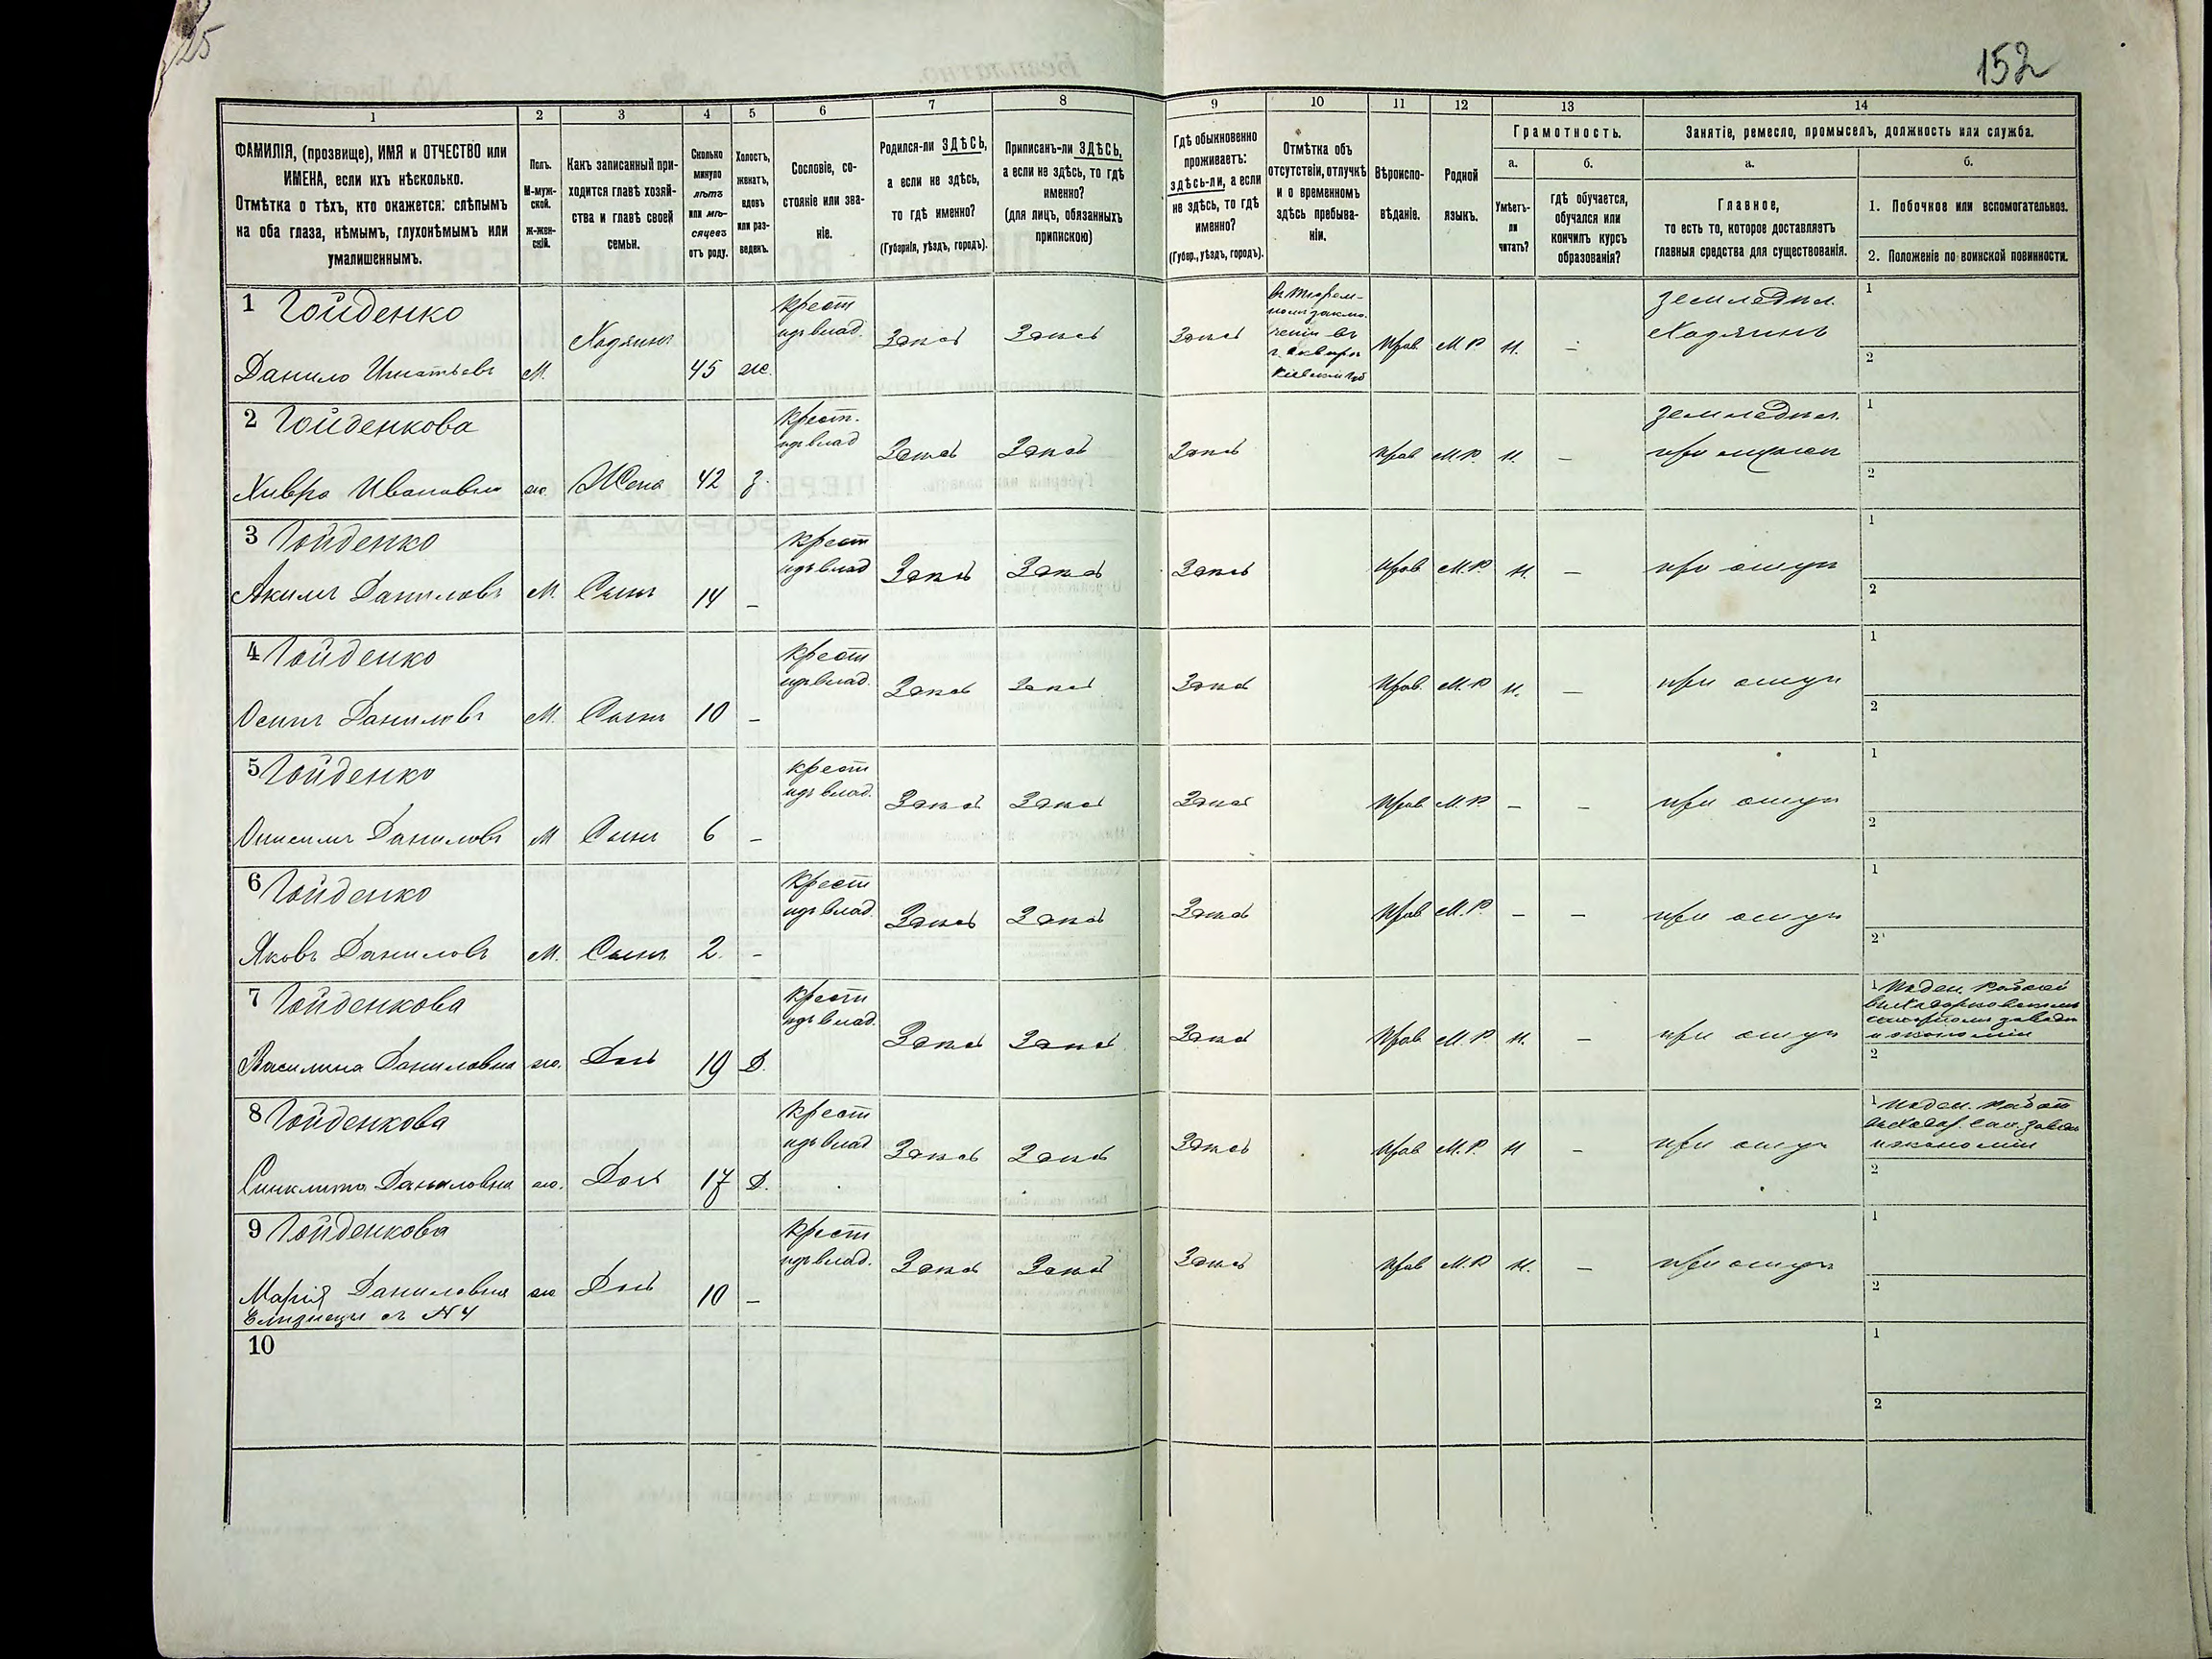 25
152
1
2
3
4
5
6
7
8
9
10
11
12
13
14
ФАМИЛІЯ, (прозвище), ИМЯ и ОТЧЕСТВО или
ИМЕНА, если ихъ нѣсколько.
Отмѣтка о тѣхъ, кто окажется: слѣпымъ
на оба глаза, нѣмымъ, глухонѣмымъ или
умалишеннымъ.
Полъ.
М-муж-
ской.
ж-жен-
скій.
Какъ записанный при-
ходится главѣ хозяй-
ства и главѣ своей
семьи.
Сколько
минуло
лѣтъ
или мѣ-
сяцевъ
отъ роду.
Холостъ,
женатъ,
вдовъ
или раз-
веденъ.
Сословіе, со-
стояніе или зва-
ніе.
Родился-ли ЗДѢСЬ,
а если не здѣсь,
то гдѣ именно?
(Губернія, уѣздъ, городъ).
Приписанъ-ли ЗДѢСЬ,
а если не здѣсь, то гдѣ
именно?
(для лицъ, обязанныхъ
припискою)
Гдѣ обыкновенно
проживаетъ:
здѣсь-ли, а если
не здѣсь, то гдѣ
именно?
(Губер., уѣздъ, городъ).
Отмѣтка объ
отсутствіи, отлучкѣ
и о временномъ
здѣсь пребыва-
ніи.
Вѣроиспо-
вѣданіе.
Родной
языкъ.
Грамотность.
а.
Умѣетъ-
ли
читать?
б.
гдѣ обучается,
обучался или
кончилъ курсъ
образованія?
Занятіе, ремесло, промыселъ, должность или служба.
а.
Главное,
то есть то, которое доставляетъ
главныя средства для существованія.
б.
1. Побочное или вспомогательное.
2. Положеніе по воинской повинности.
1 Гойденко
Данило Игнатьевъ
М.
Хозяинъ
45
ж.
крест
изъ влад.
Здѣсь
Здѣсь
Здѣсь
въ тюрем-
номъ заклю-
ченіи въ
г. Сквирѣ
Кіевской губ
Прав.
М. Р.
н.
–
земледѣл.
Хозяинъ
1
2
2 Гойденкова
Хивря Ивановна
ж.
Жена
42
з.
крест.
изъ влад
Здѣсь
Здѣсь
Здѣсь
Прав
М. Р.
н.
–
земледѣл.
при мужѣ
1
2
3 Гойденко
Акимъ Даниловъ
М.
Сынъ
14
–
крест
изъ влад
Здѣсь
Здѣсь
Здѣсь
Прав.
М. Р.
н.
–
при отцѣ
1
2
4 Гойденко
Осипъ Даниловъ
М.
Сынъ
10
–
крест
изъ влад.
Здѣсь
Здѣсь
Здѣсь
Прав.
М. Р
н.
–
при отцѣ
1
2
5 Гойденко
Онисимъ Даниловъ
М
Сынъ
6
–
крест
изъ влад.
Здѣсь
Здѣсь
Здѣсь
Прав
М. Р.
–
–
при отцѣ
1
2
6 Гойденко
Яковъ Даниловъ
М.
Сынъ
2
–
крест
изъ влад.
Здѣсь
Здѣсь
Здѣсь
Прав
М. Р.
–
–
при отцѣ
1
2
7 Гойденкова
Василина Даниловна
ж.
Дочь
19
Д.
крест
изъ влад.
Здѣсь
Здѣсь
Здѣсь
Прав
М. Р.
н.
–
при отцѣ
1 заводѣ
и экономіи
2
8 Гойденкова
Синклита Даниловна
ж.
Дочь
17
Д.
крест
изъ влад
Здѣсь
Здѣсь
Здѣсь
Прав
М. Р.
н
–
при отцѣ
1
и экономіи
2
9 Гойденкова
Марія Даниловна
Близнецы съ №4
ж
Дочь
10
–
крест
изъ влад.
Здѣсь
Здѣсь
Здѣсь
Прав
М. Р
н.
–
при отцѣ
1
2
10
1
2